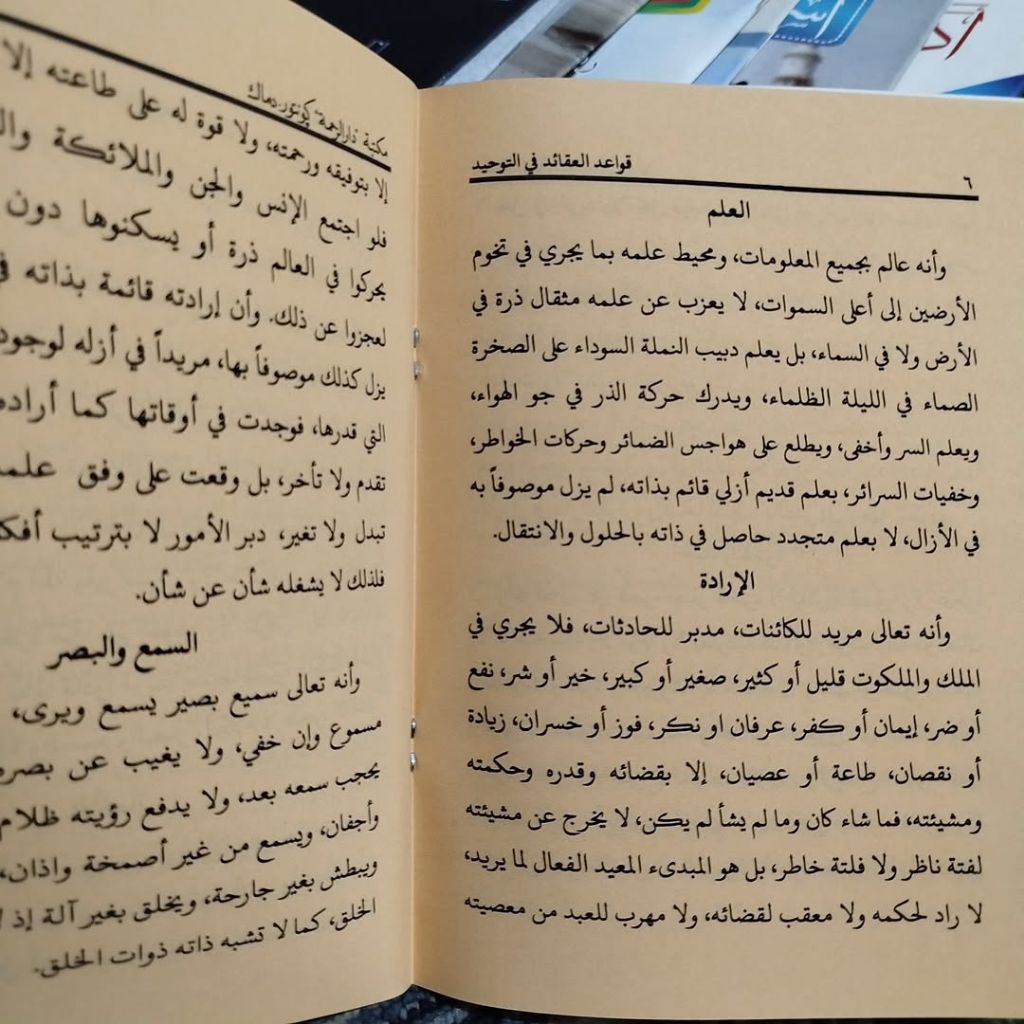 قواعد العقائد في التوحيد
٦
العلم
وأنه عالم بجميع المعلومات، ومحيط علمه بما يجري في تخوم
الأرضين إلى أعلى السموات، لا يعزب عن علمه مثقال ذرة في
الأرض ولا في السماء، بل يعلم دبيب النملة السوداء على الصخرة
الصماء في الليلة الظلماء، ويدرك حركة الذر في جو الهواء،
ويعلم السر وأخفى، ويطلع على هواجس الضمائر وحركات الخواطر،
وخفيات السرائر، بعلم قديم أزلي قائم بذاته، لم يزل موصوفاً به
في الأزال، لا بعلم متجدد حاصل في ذاته بالحلول والانتقال.
الإرادة
وأنه تعالى مريد للكائنات، مدبر للحادثات، فلا يجري في
الملك والملكوت قليل أو كثير، صغير أو كبير، خير أو شر، نفع
أو ضر، إيمان أو كفر، عرفان او نكر، فوز أو خسران، زيادة
أو نقصان، طاعة أو عصيان، إلا بقضائه وقدره وحكمته
ومشيئته، فما شاء كان وما لم يشأ لم يكن، لا يخرج عن مشيئته
لفتة ناظر ولا فلتة خاطر، بل هو المبدىء المعيد الفعال لما يريد،
لا راد لحكمه ولا معقب لقضائه، ولا مهرب للعبد من معصيته
مكتبة دار الرحمة
إلا بتوفيقه ورحمته، ولا قوة له على طاعته إلا
فلو اجتمع الإنس والجن والملائكة
يحركوا في العالم ذرة أو يسكنوها دون
لعجزوا عن ذلك. وأن إرادته قائمة بذاته
يزل كذلك موصوفاً بها، مريداً في أزله لوجود
التي قدرها، فوجدت في أوقاتها كما أراده
تقدم ولا تأخر، بل وقعت على وفق علمه
تبدل ولا تغير، دبر الأمور لا بترتيب
فلذلك لا يشغله شأن عن شأن.
السمع والبصر
وأنه تعالى سميع بصير يسمع ويرى،
مسموع وإن خفي، ولا يغيب عن بصره
يحجب سمعه بعد، ولا يدفع رؤيته ظلام
وأجفان، ويسمع من غير أصمخة واذان،
ويبطش بغير جارحة، ويخلق بغير آلة إذ
الخلق، كما لا تشبه ذاته ذوات الخلق.